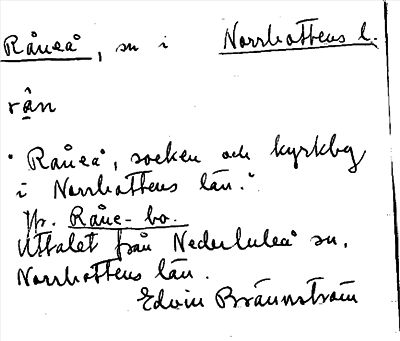 Råneå, sn i Norrbottens l.
rån
"Råneå, socken och kyrkby
i Norrbottens län."
Jfr. Råne-bo.
Uttalet från Nederluleå sn,
Norrbottens län.
Edvin Brännström